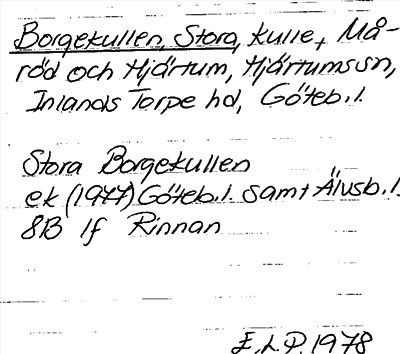 Borgekullen, Stora, kulle, Må-
röd och Hjärtum, Hjärtums sn,
Inlands Torpe hd, Göteb. l.
Stora Borgekullen
ek (1977) Göteb. l. samt Älvsb. l.
8B 1f Rinnan
E.L.P. 1978